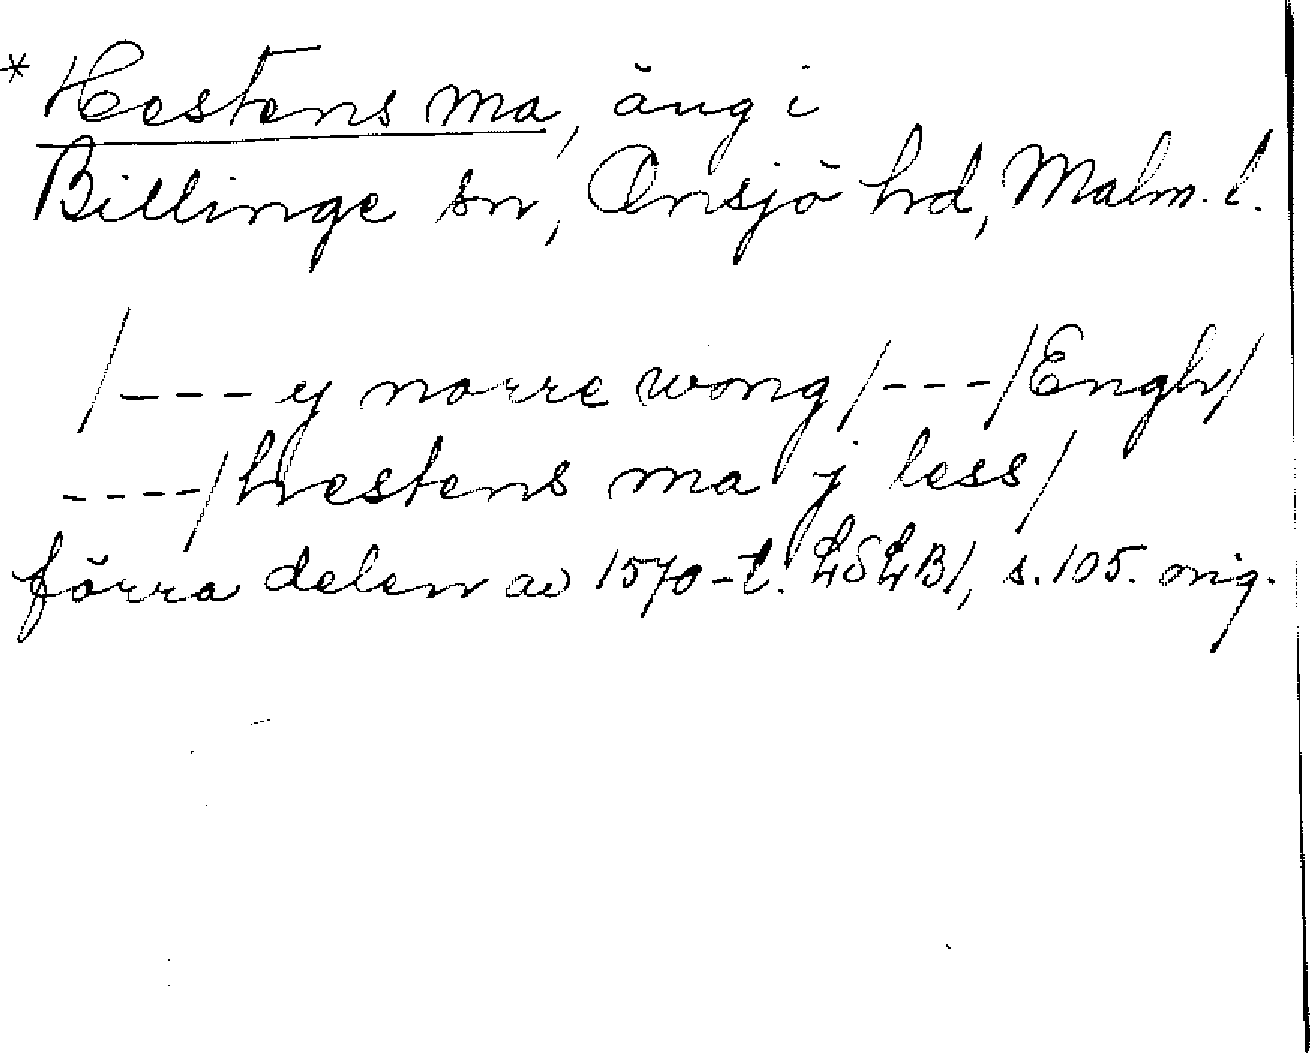 * Hestens ma, äng i
Billinge sn, Onsjö hd, Malm. l.
/---- y norre wong/---/Engh/
----/hestens ma j less/
förra delen av 1570-t. LSLB1, s. 105. orig.